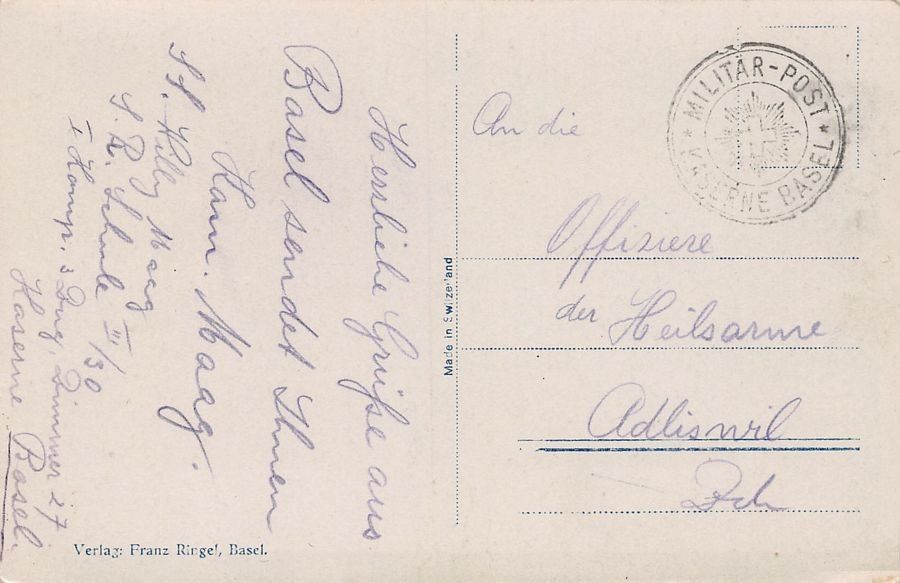 Herzliche Grüße aus
Basel sendet Ihnen
Kam. Maag.
Sd. Willy Maag
S. R. Schule III/30
I Komp. 3 Zug, Zimmer 27
Kaserne Basel.
Verlag: Franz Ringel, Basel.
Made in Swizerland
MILITÄR-POST
* KASERNE BASEL *
An die
Offiziere
der Heilsarme
Adliswil
Zch